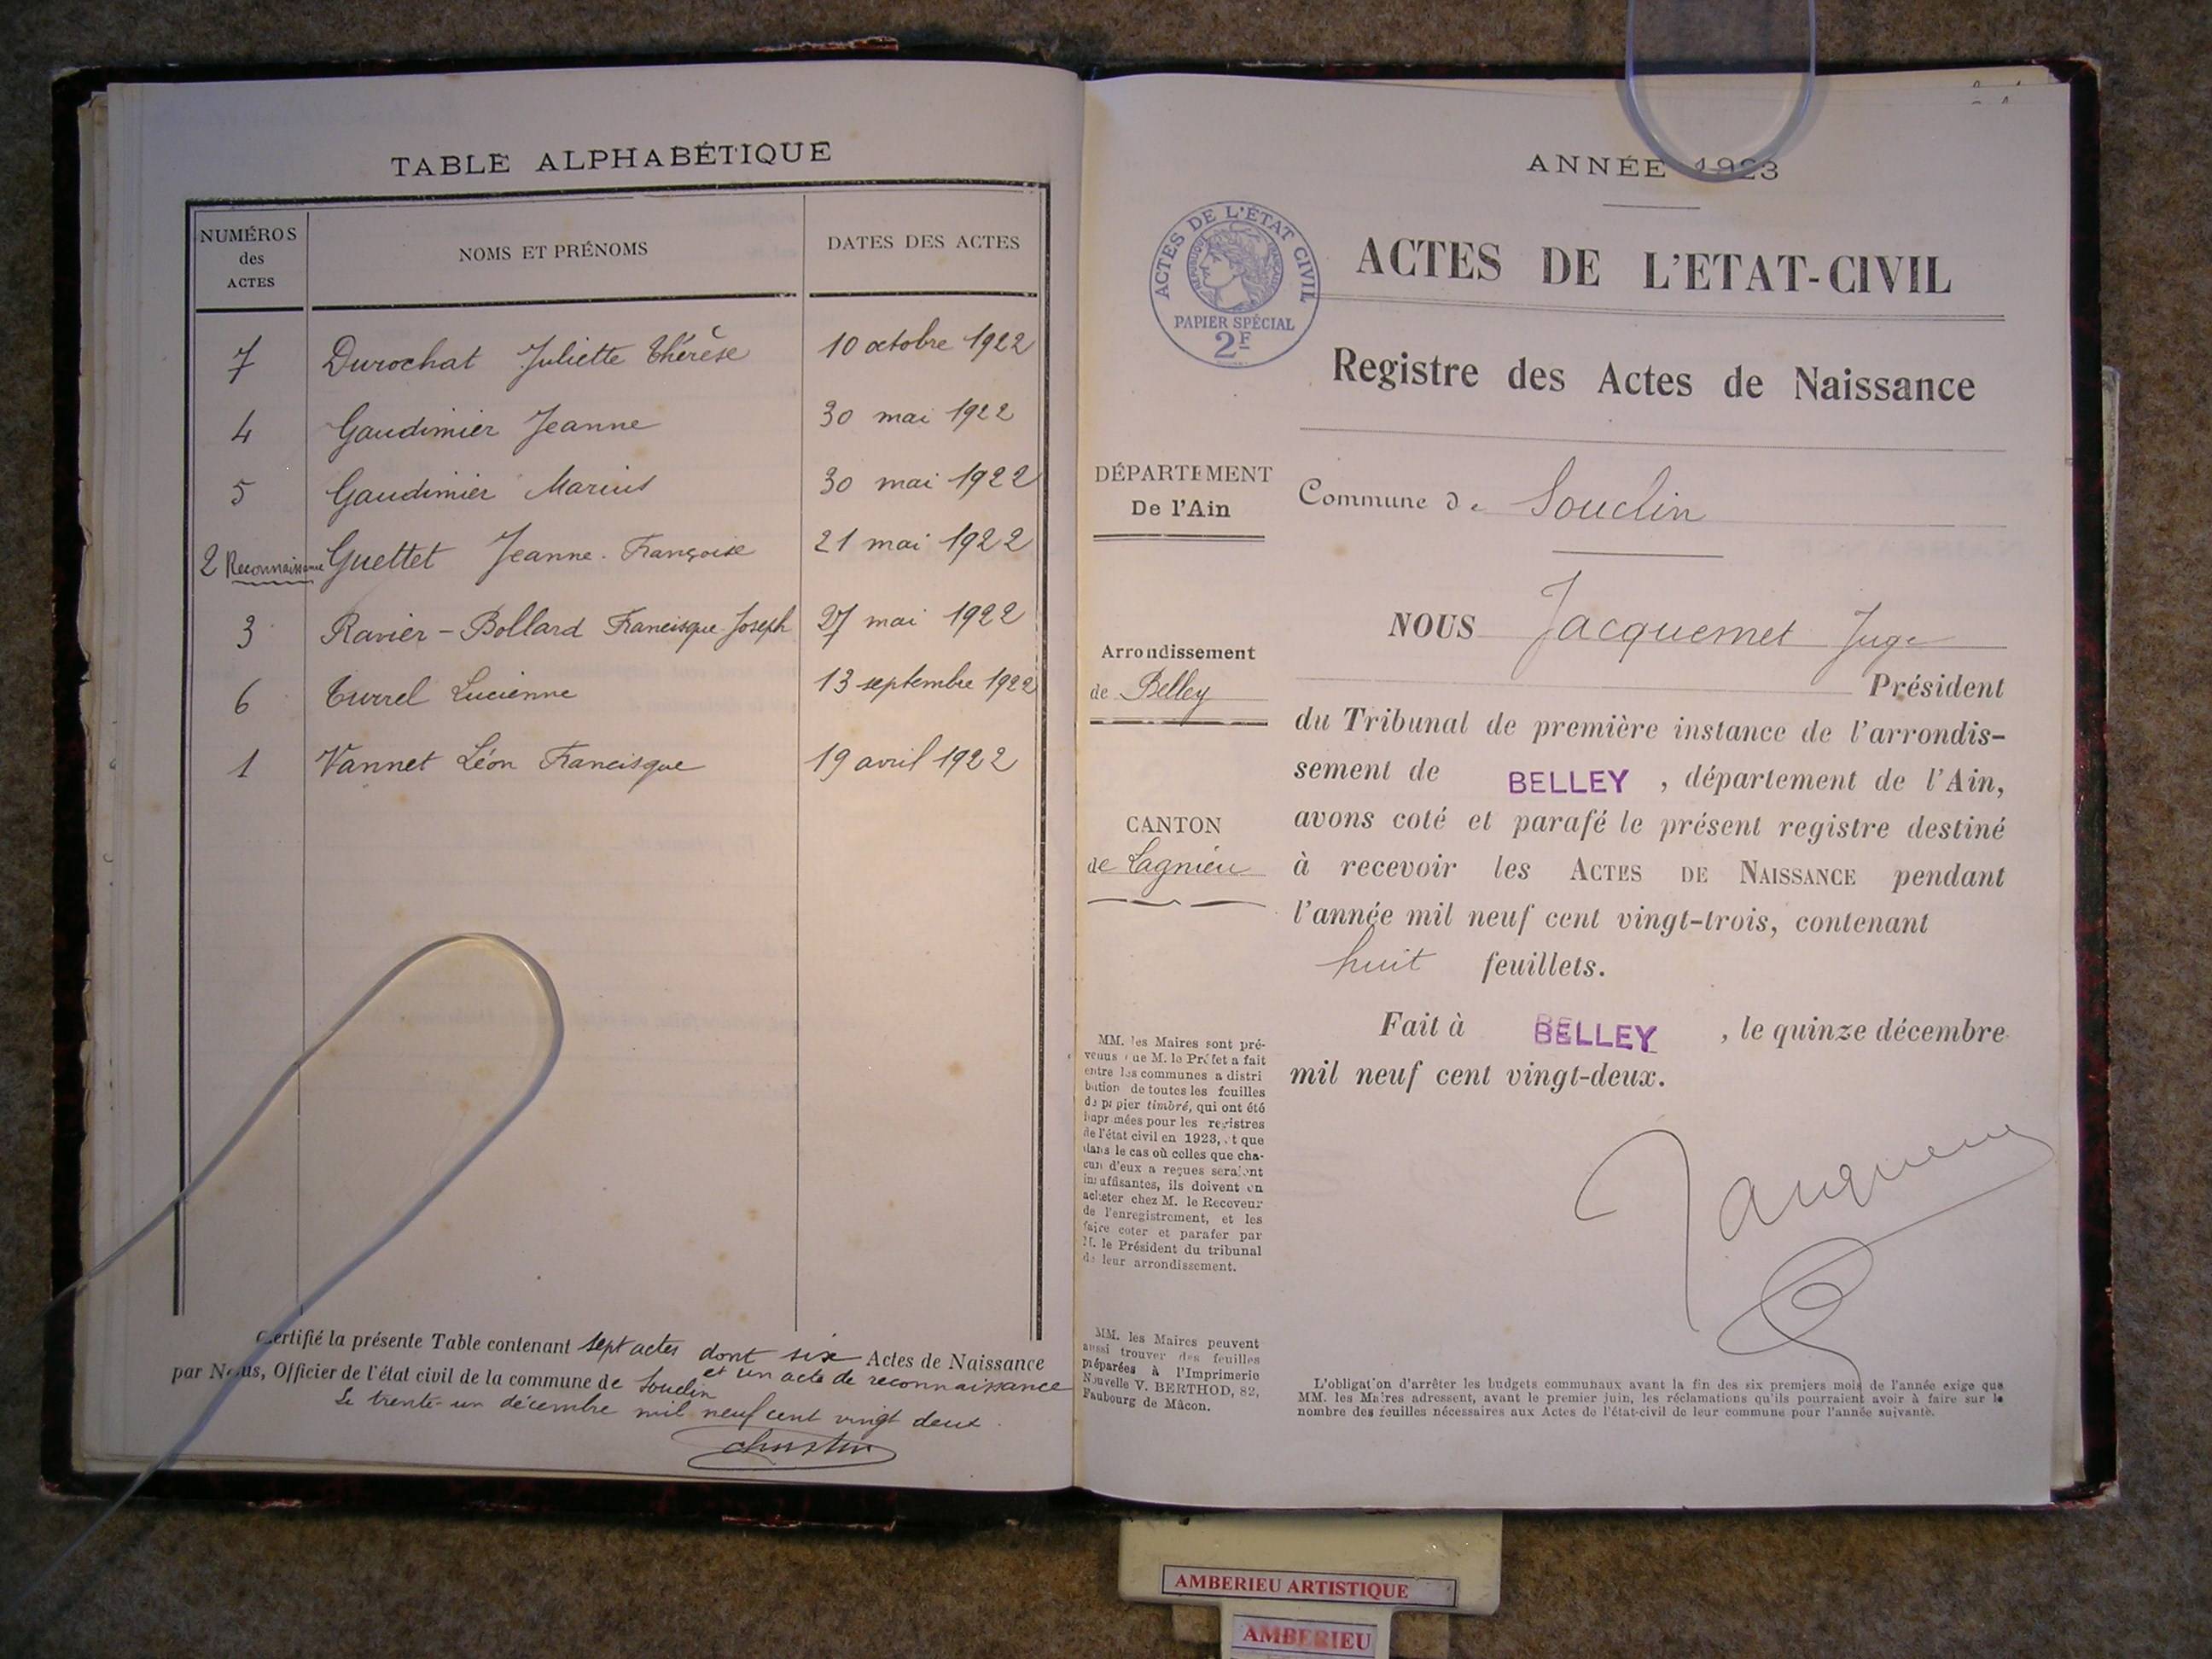 TABLE ALPHABÉTIQUE
NUMÉROS
des
ACTES
NOMS ET PRÉNOMS
DATES DES ACTES
7 Durochat Juliette Thérèse 10 octobre 1922
4 Gaudimier Jeanne 30 mai 1922
5 Gaudimier Marius 30 mai 1922
2 Reconnaissance Guettet Jeanne-Françoise 21 mai 1922
3 Ravier-Bollard Francisque Joseph 27 mai 1922
6 Turrel Lucienne 13 septembre 1922
1 Vannet Léon Francisque 19 avril 1922
Certifié la présente Table contenant sept actes dont six Actes de Naissance
et un acte de reconnaissance
par Nous, Officier de l'état civil de la commune de Souclin
Le trente-un décembre mil neuf cent vingt deux.
ANNÉE 1923
ACTES DE L'ÉTAT CIVIL
RÉPUBLIQUE FRANÇAISE
PAPIER SPÉCIAL
2F
ACTES DE L'ETAT-CIVIL
Registre des Actes de Naissance
DÉPARTEMENT
De l'Ain
Commune de Souclin
Arrondissement
de Belley
CANTON
de Lagnieu
NOUS Jacquemet Juge
Président
du Tribunal de première instance de l'arrondis-
sement de BELLEY, département de l'Ain,
avons coté et parafé le présent registre destiné
à recevoir les ACTES DE NAISSANCE pendant
l'année mil neuf cent vingt-trois, contenant
huit feuillets.
Fait à BELLEY, le quinze décembre
mil neuf cent vingt-deux.
MM. les Maires sont pré-
venus que M. le Préfet a fait
entre les communes a distri
bution de toutes les feuilles
de papier timbré, qui ont été
imprimées pour les registres
de l'état civil en 1923, et que
dans le cas où celles que cha-
cun d'eux a reçues seraient
insuffisantes, ils doivent en
acheter chez M. le Receveur
de l'enregistrement, et les
faire coter et parafer par
M. le Président du tribunal
de leur arrondissement.
MM. les Maires peuvent
aussi trouver des feuilles
préparées à l'Imprimerie
Nouvelle V. BERTHOD, 82,
Faubourg de Mâcon.
L'obligation d'arrêter les budgets communaux avant la fin des six premiers mois de l'année exige que
MM. les Maires adressent, avant le premier juin, les réclamations qu'ils pourraient avoir à faire sur le
nombre des feuilles nécessaires aux Actes de l'état-civil de leur commune pour l'année suivante.
AMBERIEU ARTISTIQUE
AMBERIEU